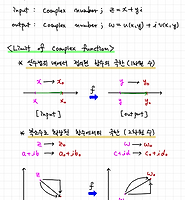 input : Complex number ; z = x + yi
output : Complex number ; ω = u(x,y) + i v(x,y)
<Limit of Complex function>
* 실수범위 내에서 정의된 함수의 극한 (1차원 수)
x → x₀ y → y₀
f
x x₀ y y₀
[input] [output]
* 복소수로 확장된 함수에서의 극한 (2차원 수)
z → z₀ ω → ω₀
a+ib → a₀+ib₀ c+id → c₀+id₀
z₀ ω₀
f